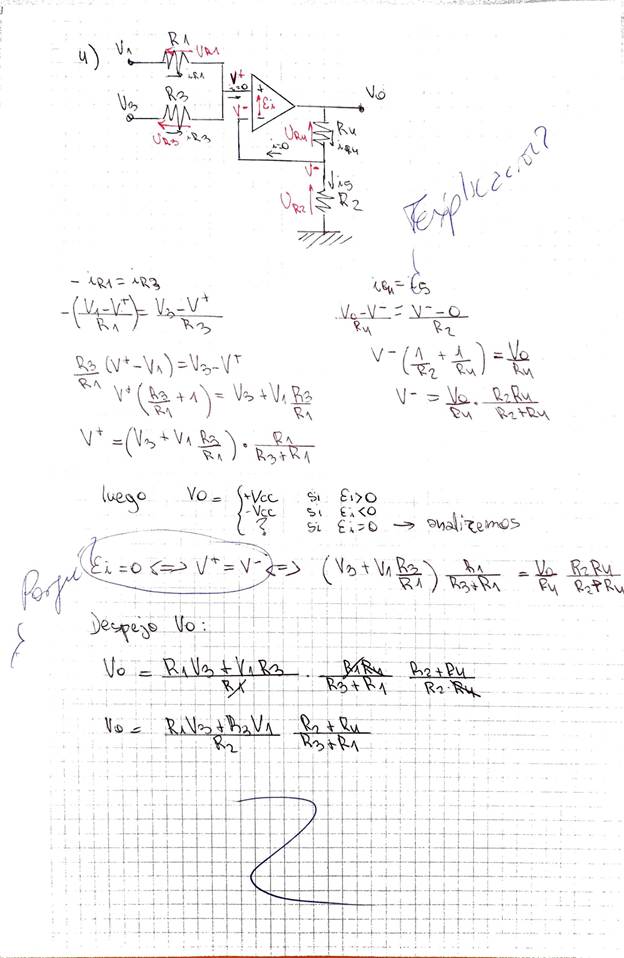 4)
V1 R1 UR1 iR1
V3 R3 UR3 iR3
V+ i=0 + Ei V- -
Vo
UR4 R4 iR4
i=0 V- i5
UR2 R2
Explicación?
- iR1 = iR3
-(V1-V+)/R1 = V3-V+/R3
R3/R1 (V+-V1) = V3-V+
V+(R3/R1 + 1) = V3+V1 R3/R1
V+ = (V3+V1 R3/R1) · R1/R3+R1
iR4 = i5
Vo-V-/R4 = V--0/R2
V-(1/R2 + 1/R4) = Vo/R4
V- = Vo/R4 · R2R4/R2+R4
luego Vo = { +Vcc si Ei>0
-Vcc si Ei<0
? si Ei=0 → analizemos
Porque? Ei=0 <=> V+=V- <=> (V3+V1 R3/R1) R1/R3+R1 = Vo/R4 R2R4/R2+R4
Despejo Vo:
Vo = R1V3+V1R3/R1 · R1R4/R3+R1 R2+R4/R2·R4
Vo = R1V3+R3V1/R2 R2+R4/R3+R1